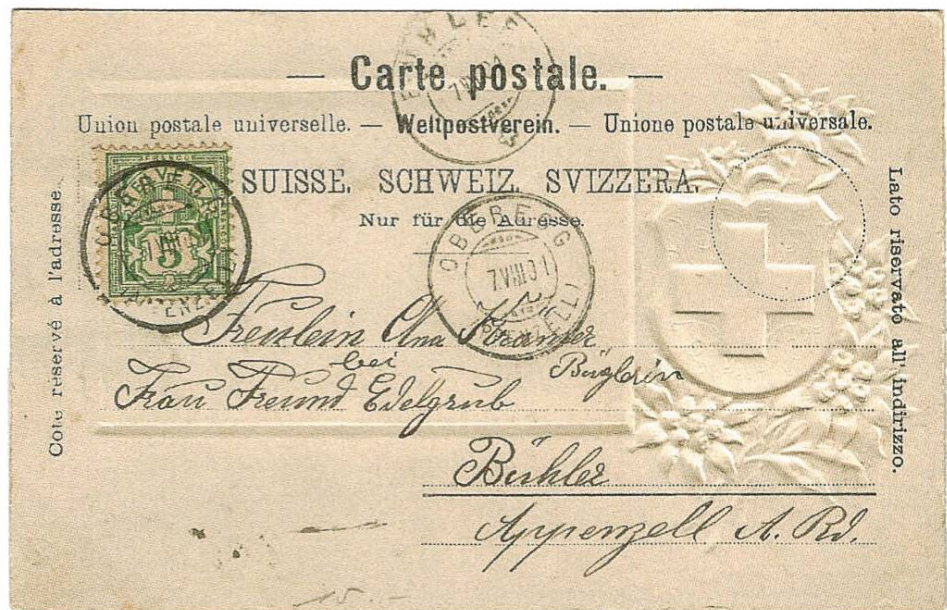 — Carte postale. —
Union postale universelle. — Weltpostverein. — Unione postale universale.
SUISSE. SCHWEIZ. SVIZZERA.
Nur für die Adresse.
Côté réservé à l'adresse.
Lato riservato all' indirizzo.
BÜHLER
OBEREGG
7.VIII.01
(APPENZELL)
FRANCO
5
Freulein Ana
bei Büglerin
Frau Freund Edelgrub
Bühler
Appenzell A. Rd.
15.-